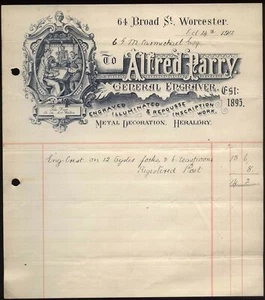 64 Broad St., Worcester.
Oct 14th
TO Alfred Parry
GENERAL ENGRAVER.
EST.
1893.
ENGRAVED
ILLUMINATED & REPOUSSE INSCRIPTION
WORK.
METAL DECORATION. HERALDRY.
Eng Crest on 12 Oyster forks & 6 teaspoons 13 6
Registered Post 8
14 2